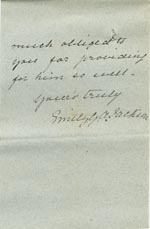 much obliged to
you for providing
for him so well -
Yours truly
Emily